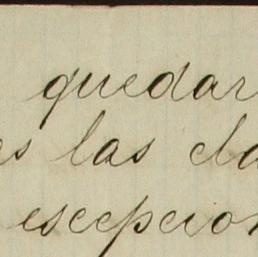 quedar
es las cla
escepcion